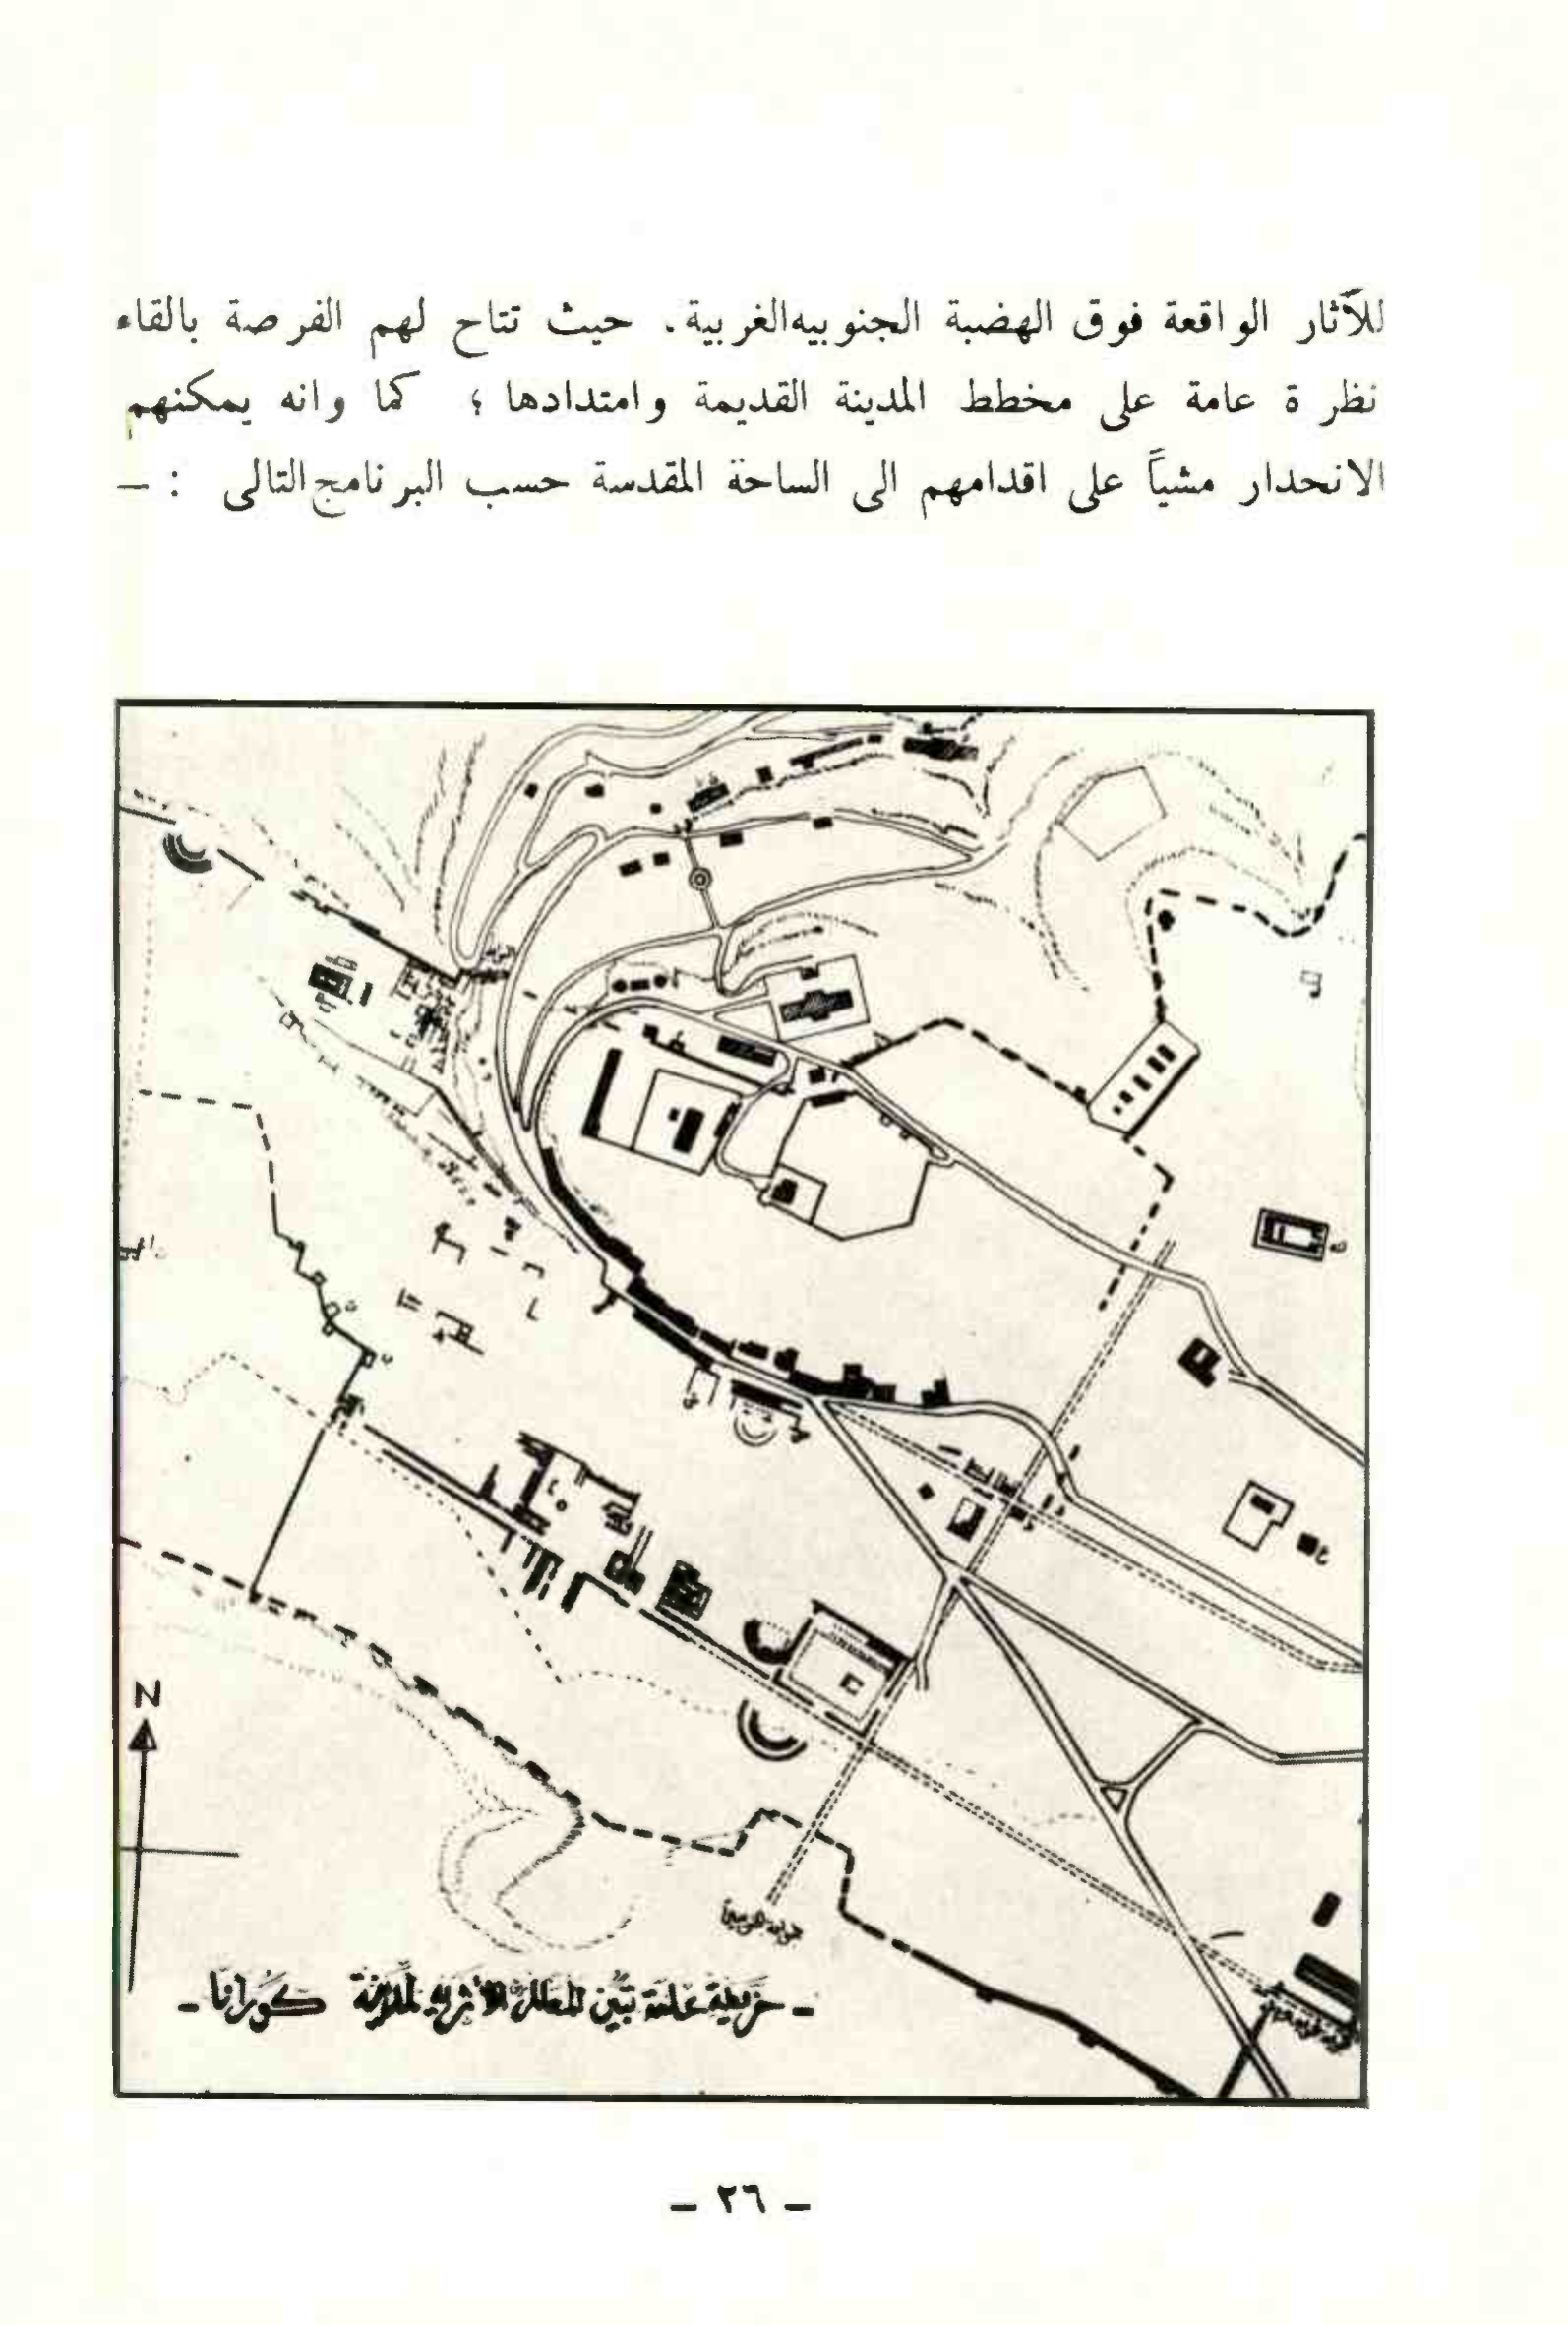 للآثار الواقعة فوق الهضبة الجنوبيه الغربية. حيث تتاح لهم الفرصة بالقاء
نظرة عامة على مخطط المدينة القديمة وامتدادها ؛ كما وانه يمكنهم
الانحدار مشياً على اقدامهم الى الساحة المقدسة حسب البرنامج التالى : –
N
- خريطة عامة تبين المعالم الأثرية لمدينة كورانا -
– ٢٦ –